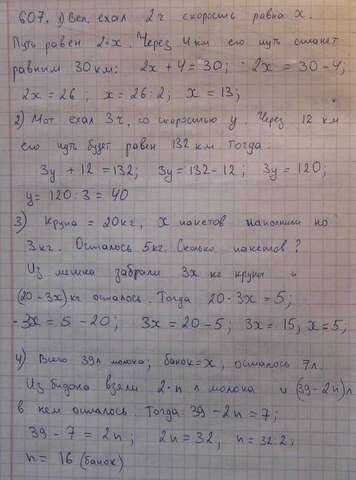 607. 1) Вел. ехал 2 ч скорость равна x.
Путь равен 2·x. Через 4 км его путь станет
равным 30 км: 2x + 4 = 30; 2x = 30 - 4;
2x = 26; x = 26:2; x = 13;
2) Мот ехал 3 ч, со скоростью y. Через 12 км
его путь будет равен 132 км Тогда.
3y + 12 = 132; 3y = 132 - 12; 3y = 120;
y = 120 : 3 = 40
3) Крупа = 20 кг, x пакетов наполнили по
3 кг. Осталось 5 кг. Сколько пакетов?
Из мешка забрали 3x кг крупы и
(20 - 3x) кг осталось. Тогда 20 - 3x = 5;
-3x = 5 - 20; 3x = 20 - 5; 3x = 15, x = 5,
4) Всего 39 л молока; банок = x, осталось 7 л.
Из бидона взяли 2·n л молока и (39 - 2n) л
в нем осталось. Тогда 39 - 2n = 7;
39 - 7 = 2n; 2n = 32, n = 32:2;
n = 16 (банок)